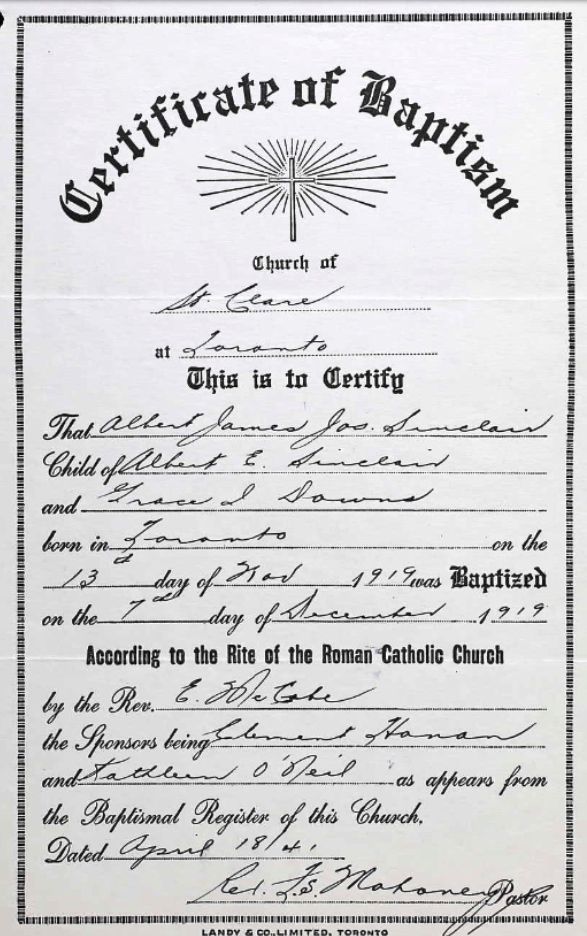 Certificate of Baptism
Church of
St. Clare
at Toronto
This is to Certify
That Albert James Jos. Sinclair
Child of Albert E. Sinclair
and Grace I Downs
born in Toronto on the
13 day of Nov 1919 was Baptized
on the 7 day of December 1919
According to the Rite of the Roman Catholic Church
by the Rev. E. McCabe
the Sponsors being Clement Hanan
and Kathleen O'Neil as appears from
the Baptismal Register of this Church.
Dated April 18/41.
Rev. Mahoney Pastor
LANDY & CO., LIMITED, TORONTO